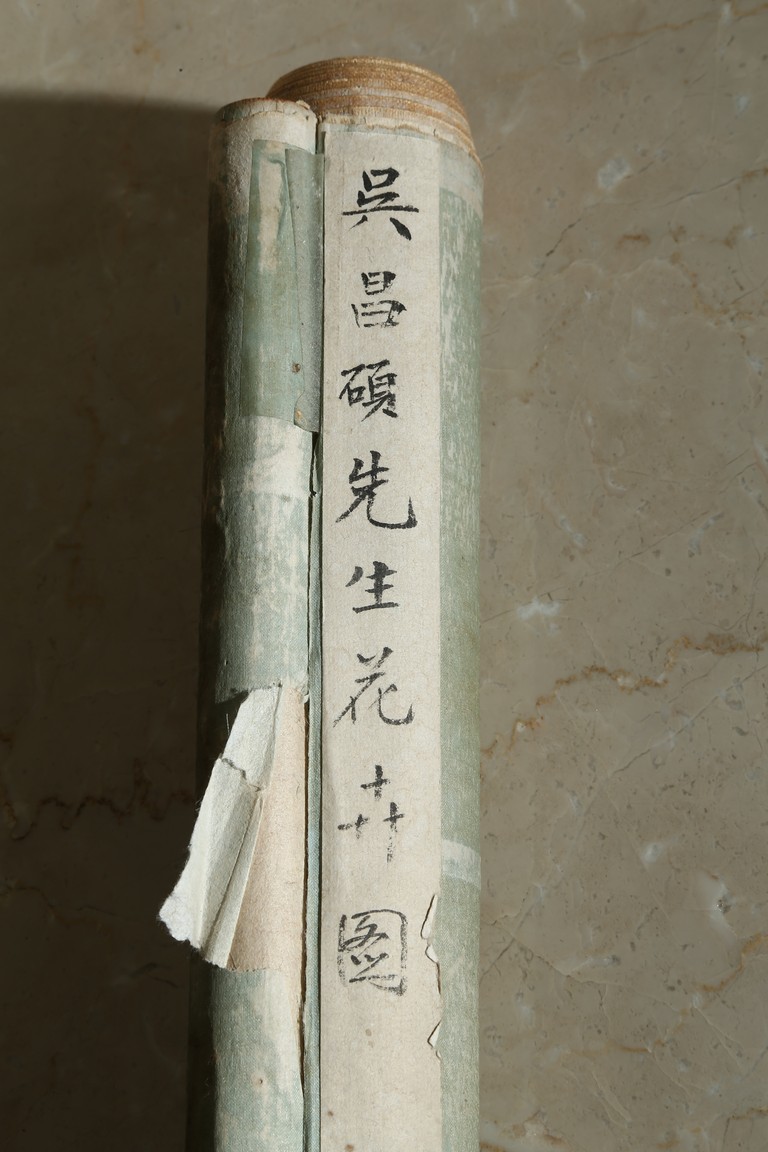 吳昌碩先生花卉图